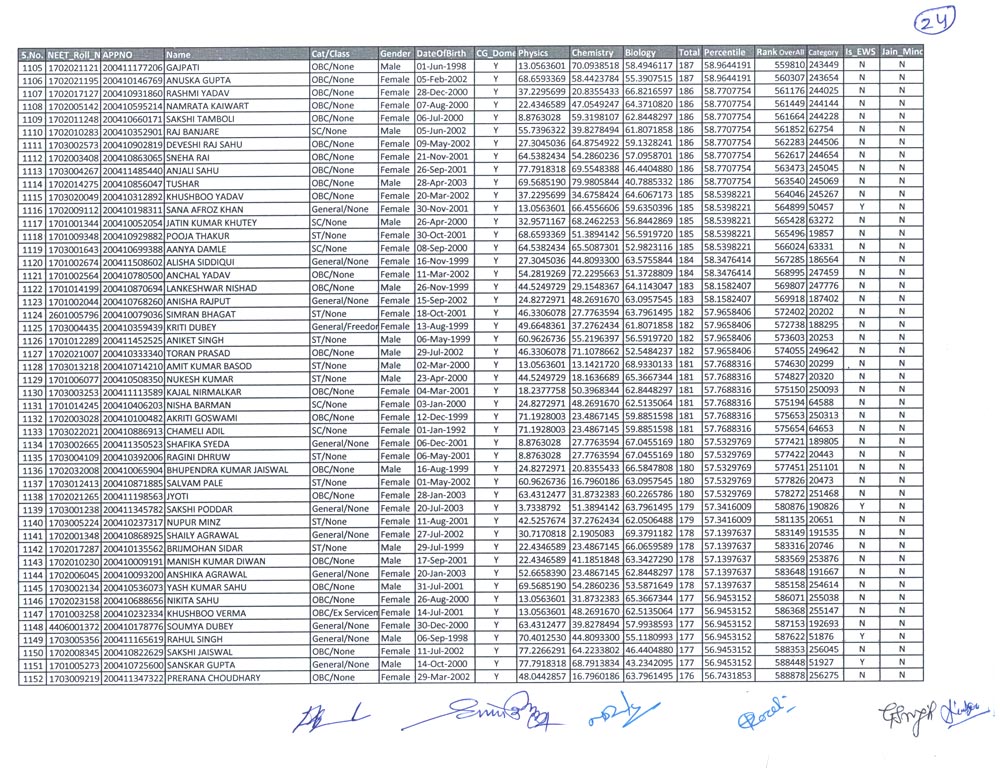 24
S.No. NEET_Roll_N APPNO Name Cat/Class Gender DateOfBirth CG_Dome Physics Chemistry Biology Total Percentile Rank OverAll Category Is_EWS Jain_Minc
1105 1702021121 200411177206 GAJPATI OBC/None Male 01-Jun-1998 Y 13.0563601 70.0938518 58.4946117 187 58.9644191 559810 243449 N N
1106 1702021195 200410146769 ANUSKA GUPTA OBC/None Female 05-Feb-2002 Y 68.6593369 58.4423784 55.3907515 187 58.9644191 560307 243654 N N
1107 1702017127 200410931860 RASHMI YADAV OBC/None Female 28-Dec-2000 Y 37.2295699 20.8355433 66.8216597 186 58.7707754 561176 244025 N N
1108 1702005142 200410595214 NAMRATA KAIWART OBC/None Female 07-Aug-2000 Y 22.4346589 47.0549247 64.3710820 186 58.7707754 561449 244144 N N
1109 1702011248 200410660171 SAKSHI TAMBOLI OBC/None Female 06-Jul-2000 Y 8.8763028 59.3198107 62.8448297 186 58.7707754 561664 244228 N N
1110 1702010283 200410352901 RAJ BANJARE SC/None Male 05-Jun-2002 Y 55.7396322 39.8278494 61.8071858 186 58.7707754 561852 62754 N N
1111 1703002573 200410902819 DEVESHI RAJ SAHU OBC/None Female 09-May-2002 Y 27.3045036 64.8754922 59.1328241 186 58.7707754 562283 244506 N N
1112 1702003408 200410863065 SNEHA RAI OBC/None Female 21-Nov-2001 Y 64.5382434 54.2860236 57.0958701 186 58.7707754 562617 244654 N N
1113 1703004267 200411485440 ANJALI SAHU OBC/None Female 26-Sep-2001 Y 77.7918318 69.5548388 46.4404880 186 58.7707754 563473 245045 N N
1114 1702014275 200410856047 TUSHAR OBC/None Male 28-Apr-2003 Y 69.5685190 79.9805844 40.7885332 186 58.7707754 563540 245069 N N
1115 1703020049 200410312892 KHUSHBOO YADAV OBC/None Female 20-Mar-2002 Y 37.2295699 34.6758424 64.6067173 185 58.5398221 564046 245267 N N
1116 1702009112 200410198311 SANA AFROZ KHAN General/None Female 30-Nov-2001 Y 13.0563601 66.4556606 59.6350396 185 58.5398221 564899 50457 Y N
1117 1701001344 200410052054 JATIN KUMAR KHUTEY SC/None Male 26-Apr-2000 Y 32.9571167 68.2462253 56.8442869 185 58.5398221 565428 63272 N N
1118 1701009348 200410929882 POOJA THAKUR ST/None Female 30-Oct-2001 Y 68.6593369 51.3894142 56.5919720 185 58.5398221 565496 19857 N N
1119 1703001643 200410699388 AANYA DAMLE SC/None Female 08-Sep-2000 Y 64.5382434 65.5087301 52.9823116 185 58.5398221 566024 63331 N N
1120 1701002674 200411508602 ALISHA SIDDIQUI General/None Female 16-Nov-1999 Y 27.3045036 44.8093300 63.5755844 184 58.3476414 567285 186564 N N
1121 1701002564 200410780500 ANCHAL YADAV OBC/None Female 11-Mar-2002 Y 54.2819269 72.2295663 51.3728809 184 58.3476414 568995 247459 N N
1122 1701014949 200410870694 LANKESHWAR NISHAD OBC/None Male 26-Nov-1999 Y 44.5249729 29.1548367 64.1143047 183 58.1582407 569807 247776 N N
1123 1701002044 200410768260 ANISHA RAJPUT General/None Female 15-Sep-2002 Y 24.8272971 48.2691670 63.0957545 183 58.1582407 569918 187402 N N
1124 2601005796 200410079036 SIMRAN BHAGAT ST/None Female 18-Oct-2001 Y 46.3306078 27.7763594 63.7961495 182 57.9658406 572402 20202 N N
1125 1703004435 200410359439 KRITI DUBEY General/Freedor Female 13-Aug-1999 Y 49.6648361 37.2762434 61.8071858 182 57.9658406 572738 188295 N N
1126 1701012289 200411452525 ANIKET SINGH ST/None Male 06-May-1999 Y 60.9626736 55.2196397 56.5919720 182 57.9658406 573603 20253 N N
1127 1702021007 200410333340 TORAN PRASAD OBC/None Male 29-Jul-2002 Y 46.3306078 71.1078662 52.5484237 182 57.9658406 574055 249642 N N
1128 1703013218 200410714210 AMIT KUMAR BASOD ST/None Male 02-Mar-2000 Y 13.0563601 13.1421720 68.9330133 181 57.7688316 574630 20299 N N
1129 1701006077 200410508350 NUKESH KUMAR ST/None Male 23-Apr-2000 Y 44.5249729 18.1636689 65.3667344 181 57.7688316 574827 20320 N N
1130 1703003253 200411113589 KAJAL NIRMALKAR OBC/None Female 04-Mar-2001 Y 18.2377758 50.3968344 62.8448297 181 57.7688316 575150 250093 N N
1131 1701014245 200410406203 NISHA BARMAN SC/None Female 03-Jan-2000 Y 24.8272971 48.2691670 62.5135064 181 57.7688316 575194 64588 N N
1132 1702003028 200410100482 AKRITI GOSWAMI OBC/None Female 12-Dec-1999 Y 71.1928003 23.4867145 59.8851598 181 57.7688316 575653 250313 N N
1133 1703022021 200410886913 CHAMELI ADIL SC/None Female 01-Jan-1992 Y 71.1928003 23.4867145 59.8851598 181 57.7688316 575654 64653 N N
1134 1703002665 200411350523 SHAFIKA SYEDA General/None Female 06-Dec-2001 Y 8.8763028 27.7763594 67.0455169 180 57.5329769 577421 189805 N N
1135 1703004109 200410392006 RAGINI DHRUW ST/None Female 06-May-2001 Y 8.8763028 27.7763594 67.0455160 180 57.5329769 577422 20443 N N
1136 1702032008 200410065904 BHUPENDRA KUMAR JAISWAL OBC/None Male 16-Aug-1999 Y 24.8272971 20.8355433 66.5847808 180 57.5329769 577451 251101 N N
1137 1703012413 200410871885 SALVAM PALE ST/None Female 01-May-2002 Y 60.9626736 16.7960186 63.0957545 180 57.5329769 577826 20473 N N
1138 1702021265 200411198563 JYOTI OBC/None Female 28-Jan-2003 Y 63.4312477 31.8732383 60.2265786 180 57.5329769 578272 251468 N N
1139 1703001238 200411345782 SAKSHI PODDAR General/None Female 20-Jul-2003 Y 3.7338792 51.3894142 63.7961495 179 57.3416009 580876 190826 Y N
1140 1703005224 200410237317 NUPUR MINZ ST/None Female 11-Aug-2001 Y 42.5257674 37.2762434 62.0506488 179 57.3416009 581135 20651 N N
1141 1702001348 200410868925 SHAILY AGRAWAL General/None Female 27-Jul-2002 Y 30.7170818 2.1905083 69.3791182 178 57.1397637 583149 191535 N N
1142 1702017287 200410135562 BRIJMOHAN SIDAR ST/None Male 29-Jul-1999 Y 22.4346589 23.4867145 66.0659589 178 57.1397637 583316 20746 N N
1143 1702010230 200410009191 MANISH KUMAR DIWAN OBC/None Male 17-Sep-2001 Y 22.4346589 41.1851848 63.3427290 178 57.1397637 583569 253876 N N
1144 1702006045 200410093200 ANSHIKA AGRAWAL General/None Female 20-Jan-2003 Y 52.6658390 23.4867145 62.8448297 178 57.1397637 583648 191667 N N
1145 1703002134 200410536073 YASH KUMAR SAHU OBC/None Male 31-Jul-2001 Y 69.5685190 54.2860236 53.5871649 178 57.1397637 585158 254614 N N
1146 1702023158 200410688656 NIKITA SAHU OBC/None Female 26-Aug-2000 Y 13.0563601 31.8732383 65.3667344 177 56.9453152 586071 255038 N N
1147 1701003258 200410232334 KHUSHBOO VERMA OBC/Ex Servicen Female 14-Jul-2001 Y 13.0563601 48.2691670 62.5135064 177 56.9453152 586368 255147 N N
1148 4406001372 200410178776 SOUMYA DUBEY General/None Female 30-Dec-2000 Y 63.4312477 39.8278494 57.9938593 177 56.9453152 587153 192693 N N
1149 1703005356 200411165619 RAHUL SINGH General/None Male 06-Sep-1998 Y 70.4012530 44.8093300 55.1180993 177 56.9453152 587622 51876 Y N
1150 1702008345 200410822629 SAKSHI JAISWAL OBC/None Female 11-Jul-2002 Y 77.2266291 64.2233802 46.4404880 177 56.9453152 588353 256045 N N
1151 1701005273 200410725600 SANSKAR GUPTA General/None Male 14-Oct-2000 Y 77.7918318 68.7913834 43.2342095 177 56.9453152 588448 51927 Y N
1152 1703009219 200411347322 PRERANA CHOUDHARY OBC/None Female 29-Mar-2002 Y 48.0442857 16.7960186 63.7961495 176 56.7431853 588878 256275 N N